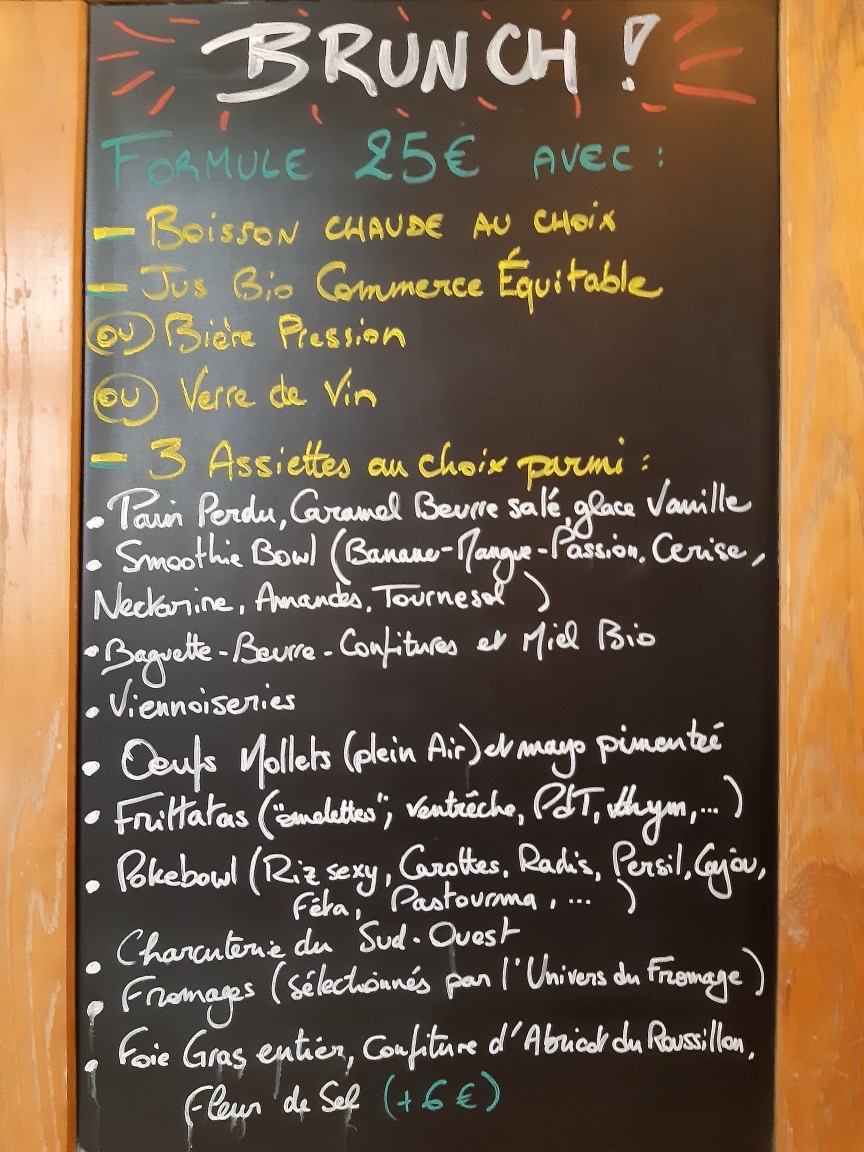 BRUNCH !
FORMULE 25€ AVEC :
- BOISSON CHAUDE AU CHOIX
- Jus Bio Commerce Équitable
OU Bière Pression
OU Verre de Vin
- 3 Assiettes au choix parmi :
• Pain Perdu, Caramel Beurre salé, glace Vanille
• Smoothie Bowl (Banane-Mangue-Passion, Cerise,
Nectarine, Amandes, Tournesol)
• Baguette-Beurre-Confitures et Miel Bio
• Viennoiseries
• Oeufs Mollets (plein Air) et mayo pimentée
• Frittatas ("omelettes"; ventrêche, PdT, thym,...)
• Pokebowl (Riz sexy, Carottes, Radis, Persil, Cajou,
Féta, Pastourma, ...)
• Charcuterie du Sud-Ouest
• Fromages (sélectionnés par l'Univers du Fromage)
• Foie Gras entier, Confiture d'Abricot du Roussillon,
Fleur de Sel (+6€)